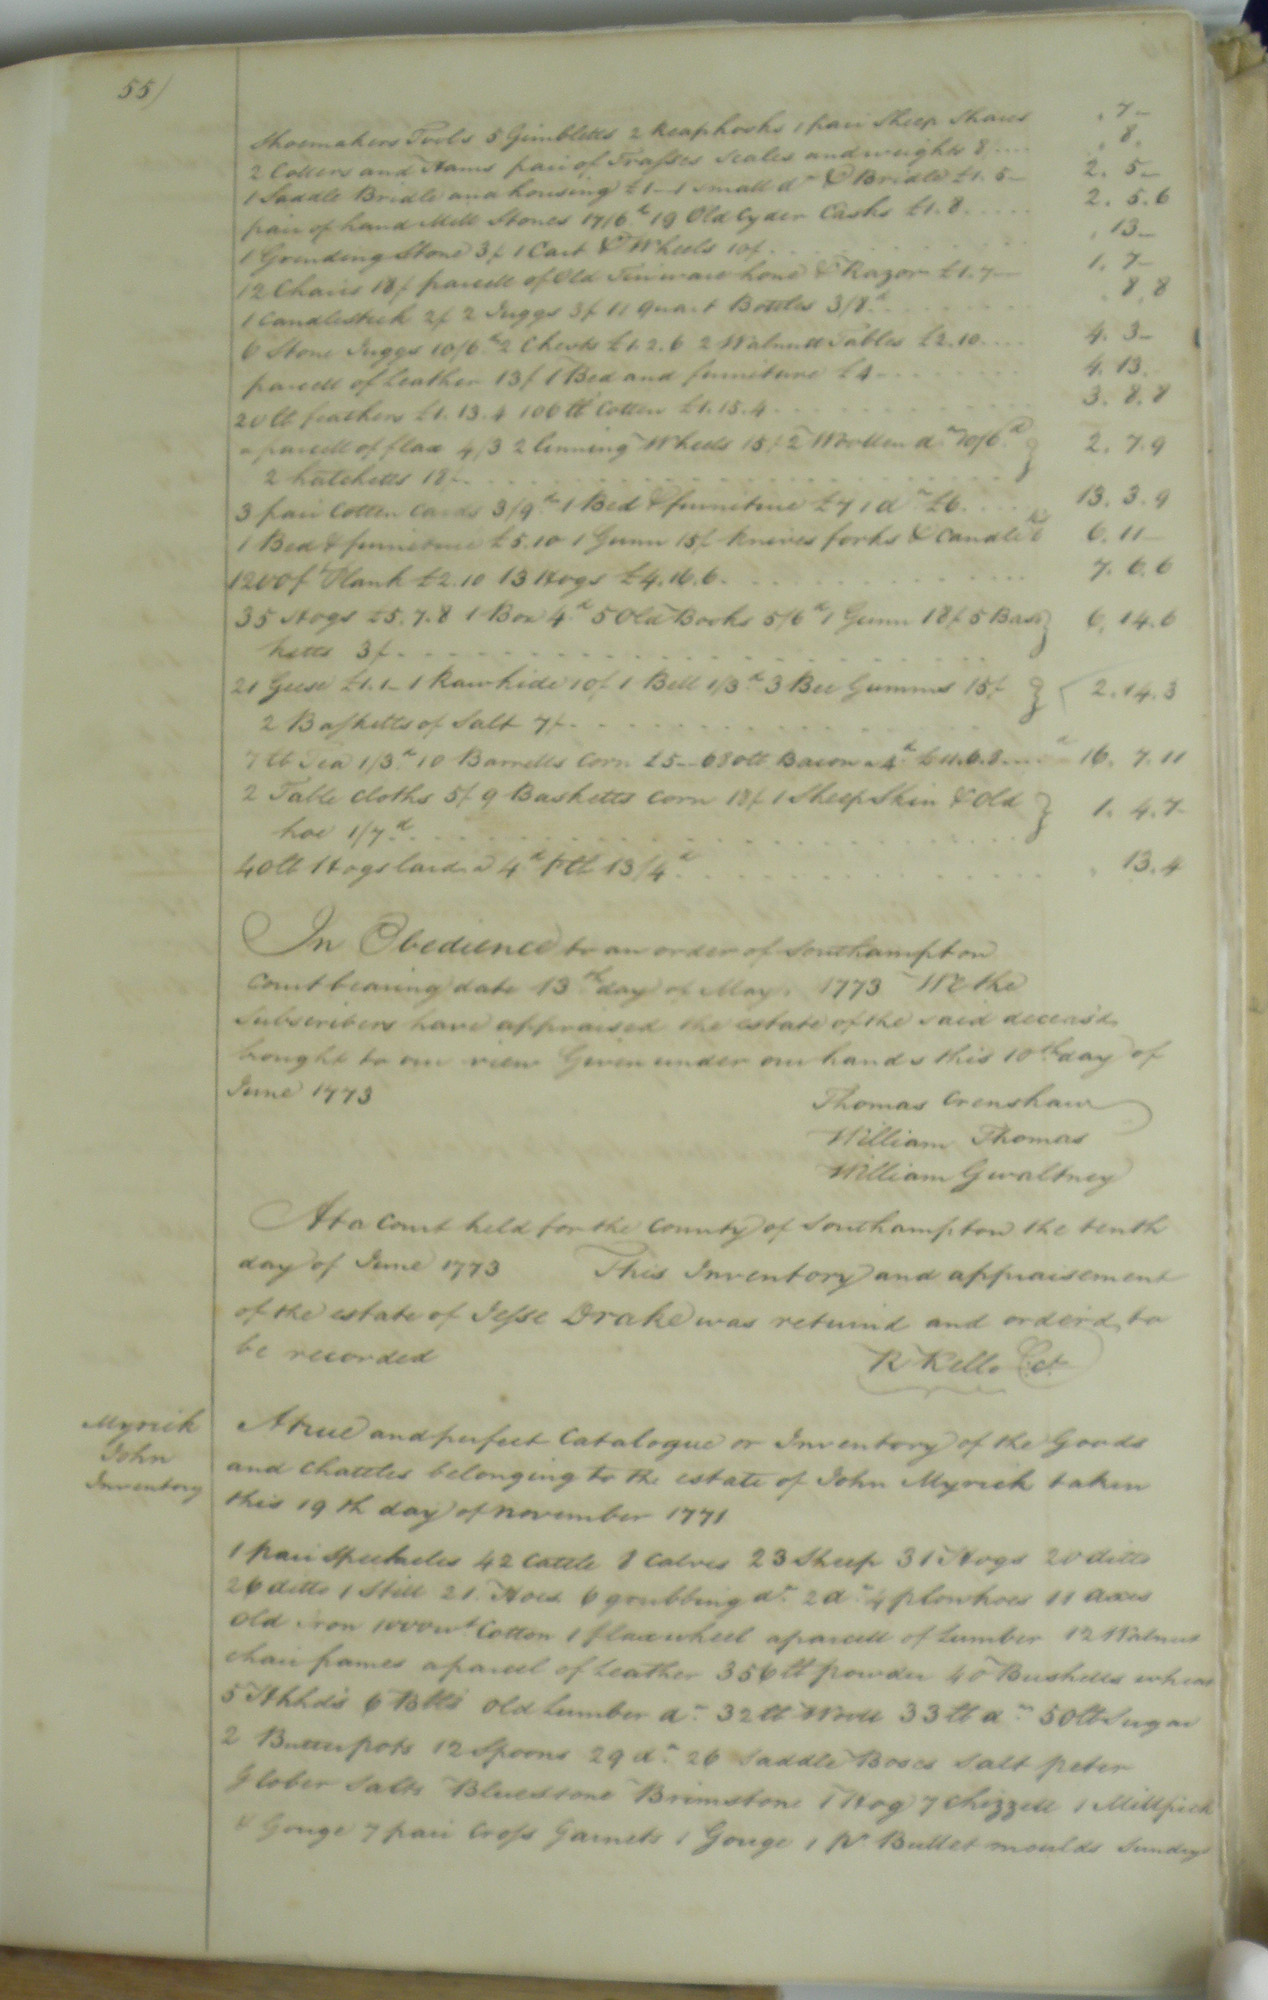 55/
Shoemakers Tools 5 Gimbletts 2 Reaphooks 1 pair Sheep Shears , 7 —
2 Collers and Hams pair of Trasses Scales and weights 8/ .... , 8 ,
1 Saddle Bridle and housing £1 — 1 small do & Bridle £1. 5 — 2. 5 —
pair of hand Mill Stones 17/6d 19 Old Cyder Casks £1. 8 ..... 2. 5. 6
1 Grinding Stone 3/ 1 Cart & Wheels 10/ . . . , 13 —
12 Chairs 18/ parcell of Old Tinware hone & Razor £1. 7 — 1. 7 —
1 Candlestick 2/ 2 Juggs 3/ 11 quart Bottles 3/8d . . . . . , 8. 8
6 Stone Juggs 10/6d 2 Chests £1. 2. 6 2 Walnutt Tables £2. 10 .... 4. 3 —
parcell of Leather 13/ 1 Bed and furniture £4 . . . . . 4. 13 .
20 lb feathers £1. 13. 4 106 lb Cotton £1. 15. 4 . . . . . 3. 8. 8
a parcell of flax 4/3 2 linning Wheels 15/ 2 Woollen do 10/6d } 2. 7. 9
2 hatchetts 18/ . . . . .
3 pair Cotton Cards 3/9d 1 Bed & furniture £7 1 do £6 . . . . 13. 3. 9
1 Bed & furniture £5. 10 1 Gunn 15/ knives forks & Candle 6/ 6. 11 —
1200f Plank £2. 10 13 Hogs £4. 16. 6 . . . . . 7. 6. 6
35 Hogs £5. 7. 8 1 Box 4d 5 Old Books 5/6d 1 Gunn 18/ 5 Bas } 6. 14. 6
ketts 3/ . . . . .
21 Geese £1. 1 — 1 Rawhide 10/ 1 Bell 1/3d 3 Bee Gumms 15/ } 2. 14. 3
2 Basketts of Salt 7/ . . . . .
7 lb Tea 1/3d 10 Barrells Corn £5 — 680 lb Bacon a 4d £11. 6. 8 .... 16. 7. 11
2 Table Cloths 5/ 9 Basketts Corn 18/ 1 Sheep Skin & Old } 1. 4. 7
hoe 1/7d . . . . .
40 lb Hogs lard a 4d ⅌ lb 13/4d . . . . . , 13. 4
In Obedience to an order of Southampton
Court bearing date 13th day of May 1773 We the
Subscribers have appraised the estate of the said deceas'd
brought to our view Given under our hands this 10th day of
June 1773
Thomas Crenshaw
William Thomas
William Gwaltney
At a Court held for the County of Southampton the tenth
day of June 1773 This Inventory and appraisement
of the estate of Jesse Drake was return'd and order'd to
be recorded R Kello C. Ct
Myrick
John
Inventory
A true and perfect Catalogue or Inventory of the Goods
and Chattles belonging to the estate of John Myrick taken
this 19th day of November 1771
1 pair Spectacles 42 Cattle 8 Calves 23 Sheep 31 Hogs 20 ditto
26 ditto 1 Still 21 Hoes 6 grubbing do 2 do 4 plowhoes 11 axes
Old Iron 1000wt Cotton 1 flax wheel a parcell of Lumber 12 Walnut
chair frames a parcel of Leather 356 lb powder 40 Bushells wheat
5 Hhhds 6 Blls Old Lumber do 32 lb Wooll 33 lb do 50 lb Sugar
2 Butterpots 12 Spoons 29 do 26 Saddle Boses Salt peter
Glober Salts Bluestone Brimstone 1 Hog 7 Chizzell 1 Millpick
& Gouge 7 pair Cross Garnets 1 Gouge 1 pr Bullet moulds Sundry